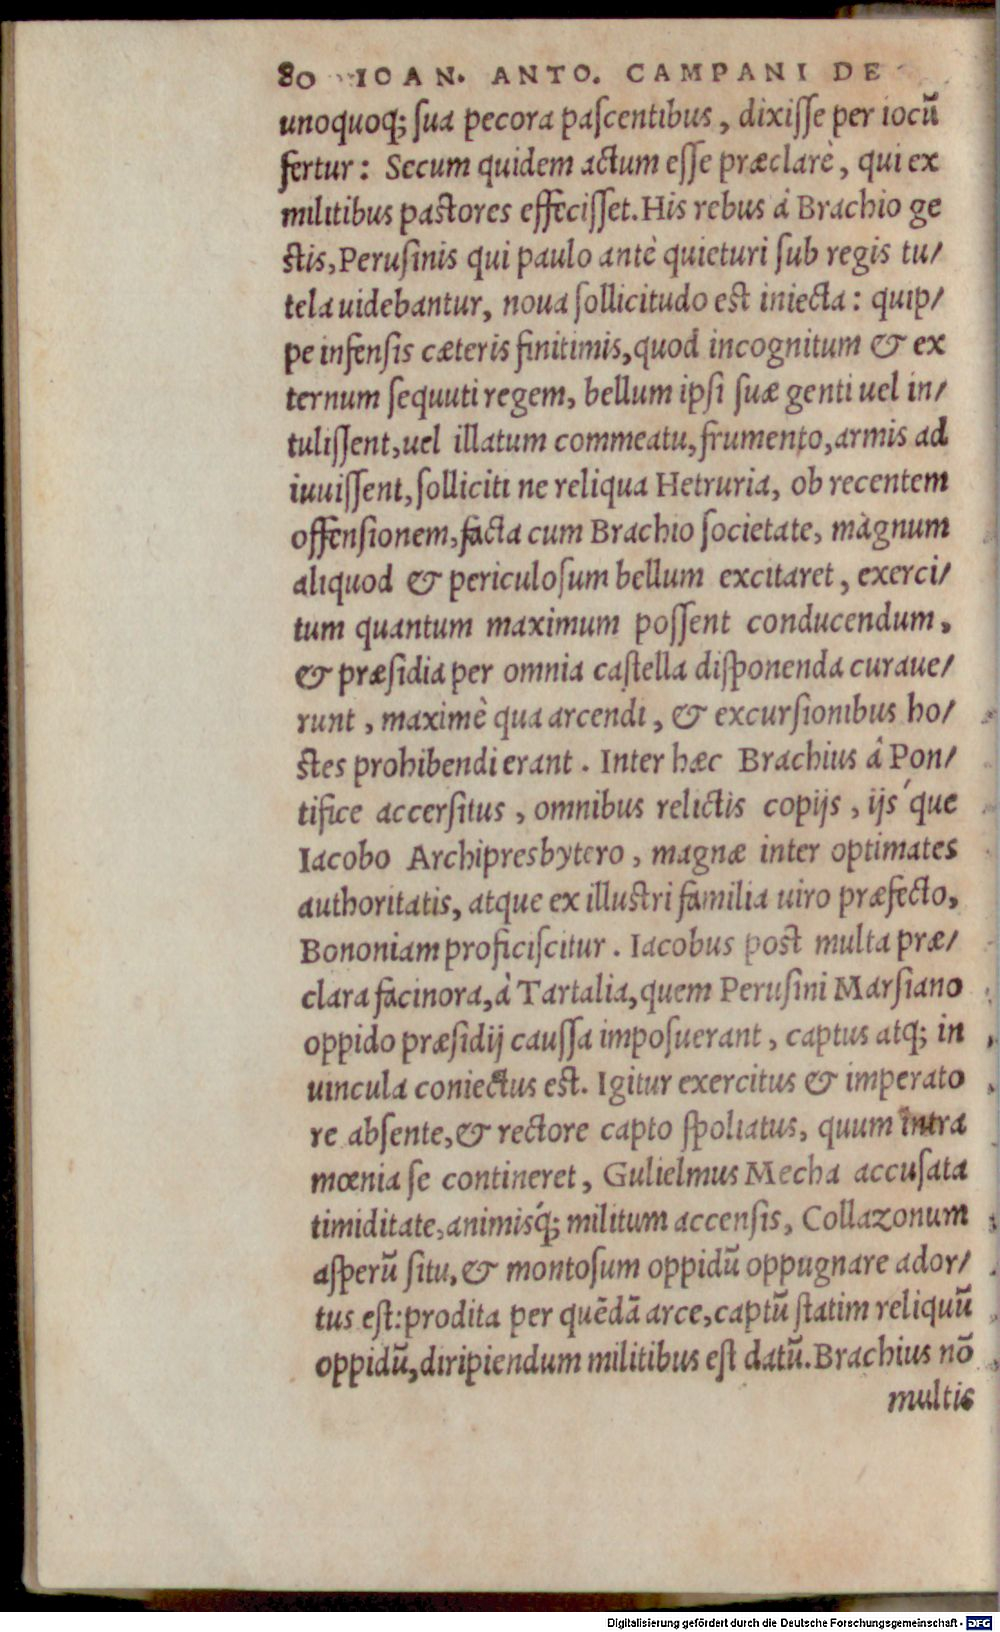 80 IOAN. ANTO. CAMPANI DE
unoquoq; sua pecora pascentibus, dixisse per iocū
fertur: Secum quidem actum esse præclarè, qui ex
militibus pastores effecisset. His rebus â Brachio ge
stis, Perusinis qui paulo antè quieturi sub regis tu/
tela uidebantur, noua sollicitudo est iniecta: quip/
pe infensis cæteris finitimis, quod incognitum & ex
ternum sequuti regem, bellum ipsi suæ genti uel in/
tulissent, uel illatum commeatu, frumento, armis ad
iuuissent, solliciti ne reliqua Hetruria, ob recentem
offensionem, facta cum Brachio societate, magnum
aliquod & periculosum bellum excitaret, exerci/
tum quantum maximum possent conducendum,
& præsidia per omnia castella disponenda curaue/
runt, maximè qua arcendi, & excursionibus ho/
stes prohibendi erant. Inter hæc Brachius â Pon/
tifice accersitus, omnibus relictis copijs, ijs´que
Iacobo Archipresbytero, magnæ inter optimates
authoritatis, atque ex illustri familia uiro præfecto,
Bononiam proficiscitur. Iacobus post multa præ/
clara facinora, à Tartalia, quem Perusini Marsiano
oppido præsidij caussa imposuerant, captus atq; in
uincula coniectus est. Igitur exercitus & imperato
re absente, & rectore capto spoliatus, quum intra
mœnia se contineret, Gulielmus Mecha accusata
timiditate, animis´q; militum accensis, Collazonum
asperū situ, & montosum oppidū oppugnare ador/
tus est: prodita per quēdā arce, captū statim reliquū
oppidū, diripiendum militibus est datū. Brachius nō
multis
Digitalisierung gefördert durch die Deutsche Forschungsgemeinschaft - DFG